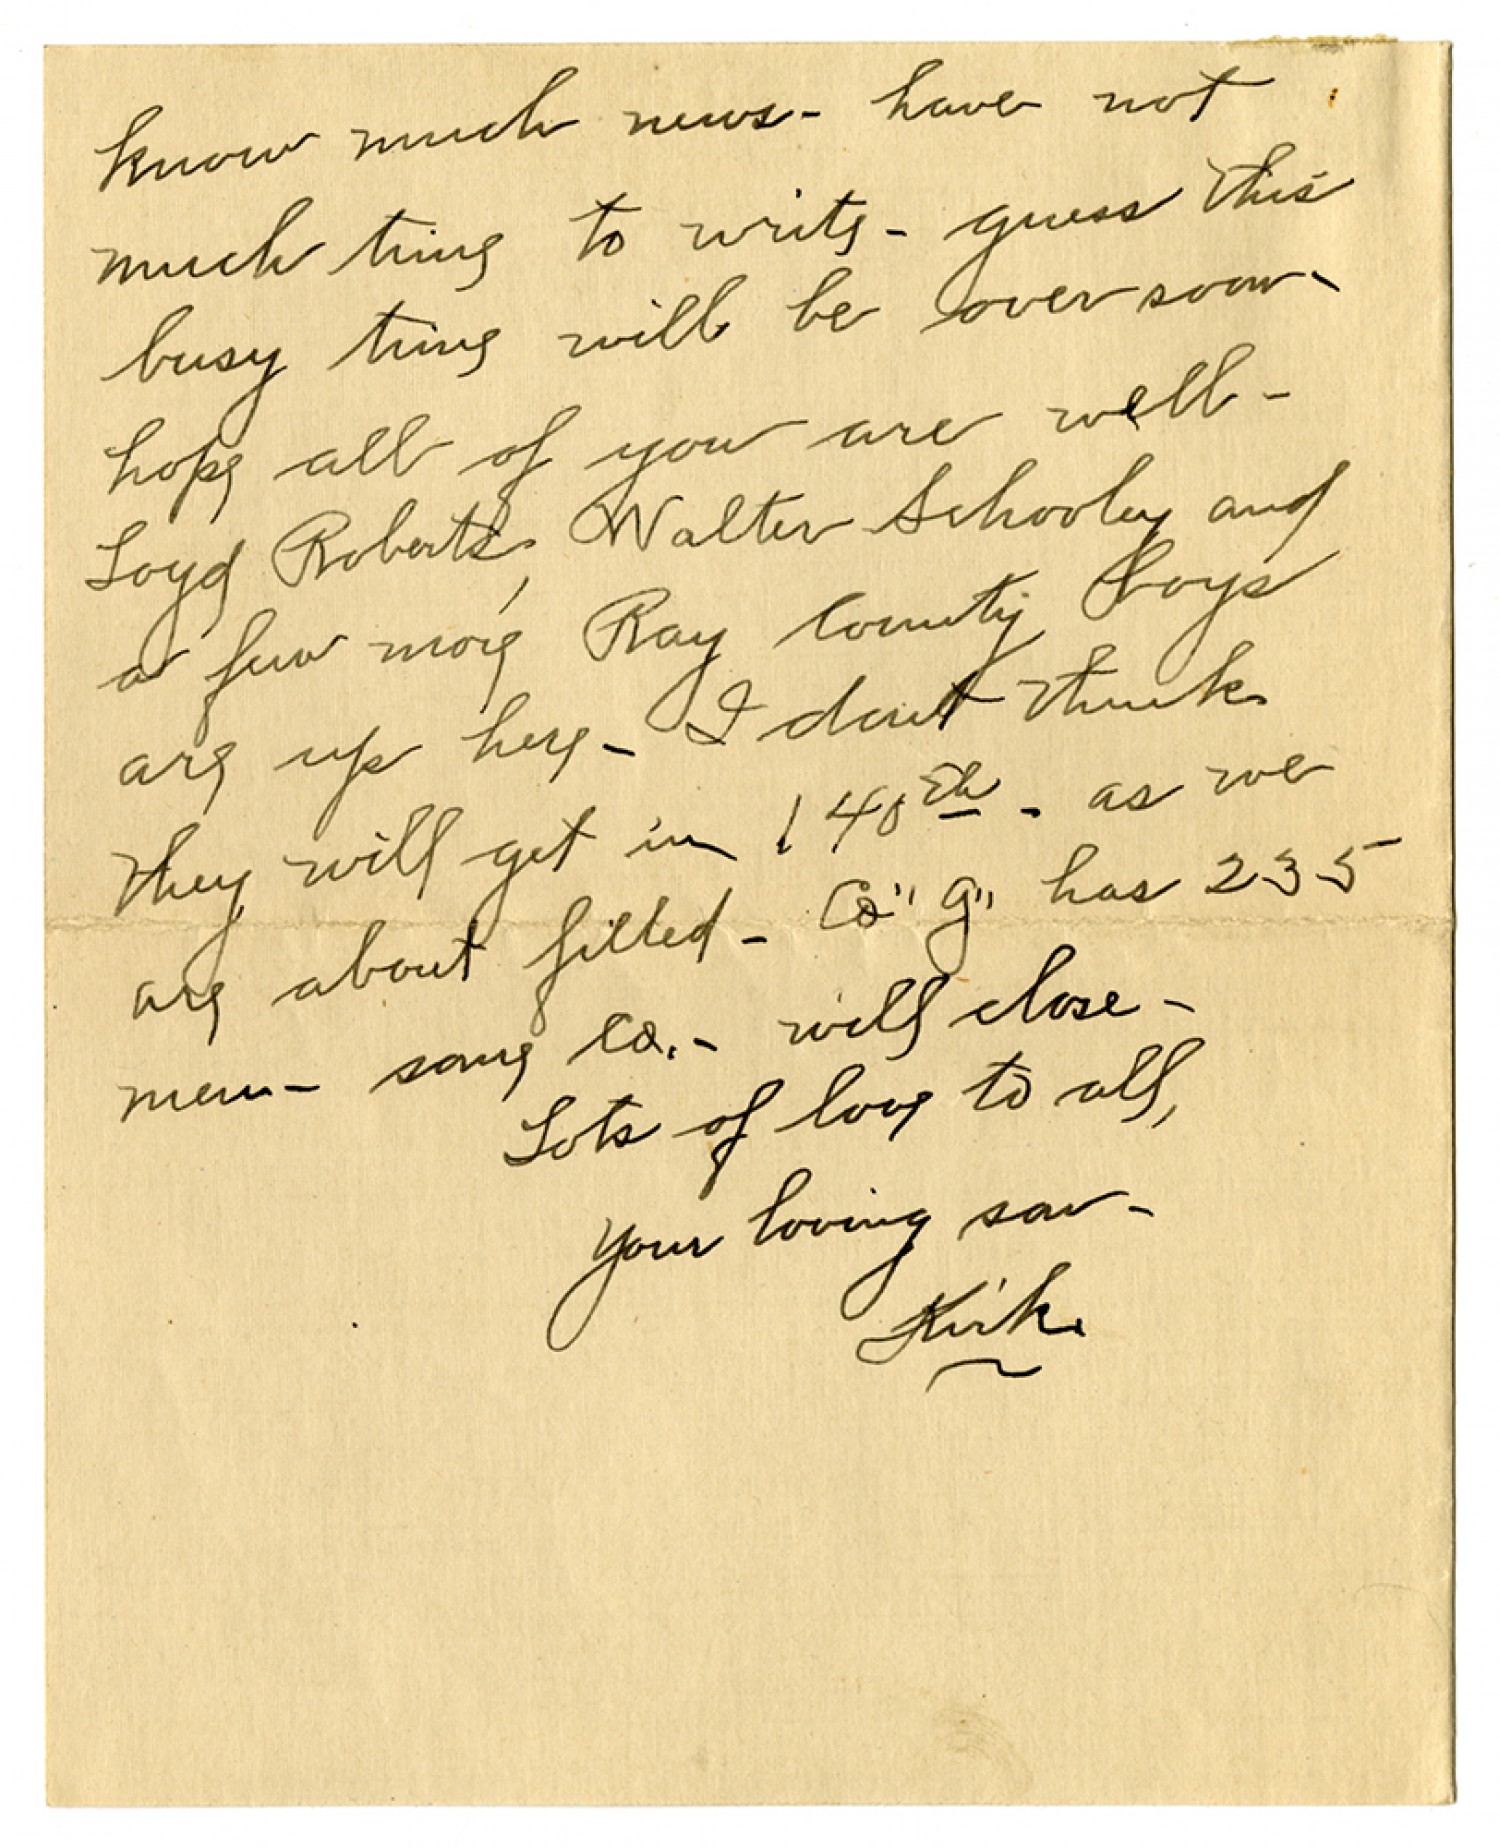 know much news - have not
much time to write - guess this
busy time will be over soon -
hope all of you are well -
Loyd Roberts, Walter Schooley and
a few more Ray County boys
are up here - I don't think
they will get in 140th - as we
are about filled - Co "G" has 235
men - some Co. - will close -
Lots of love to all,
Your loving son -
Kirk.